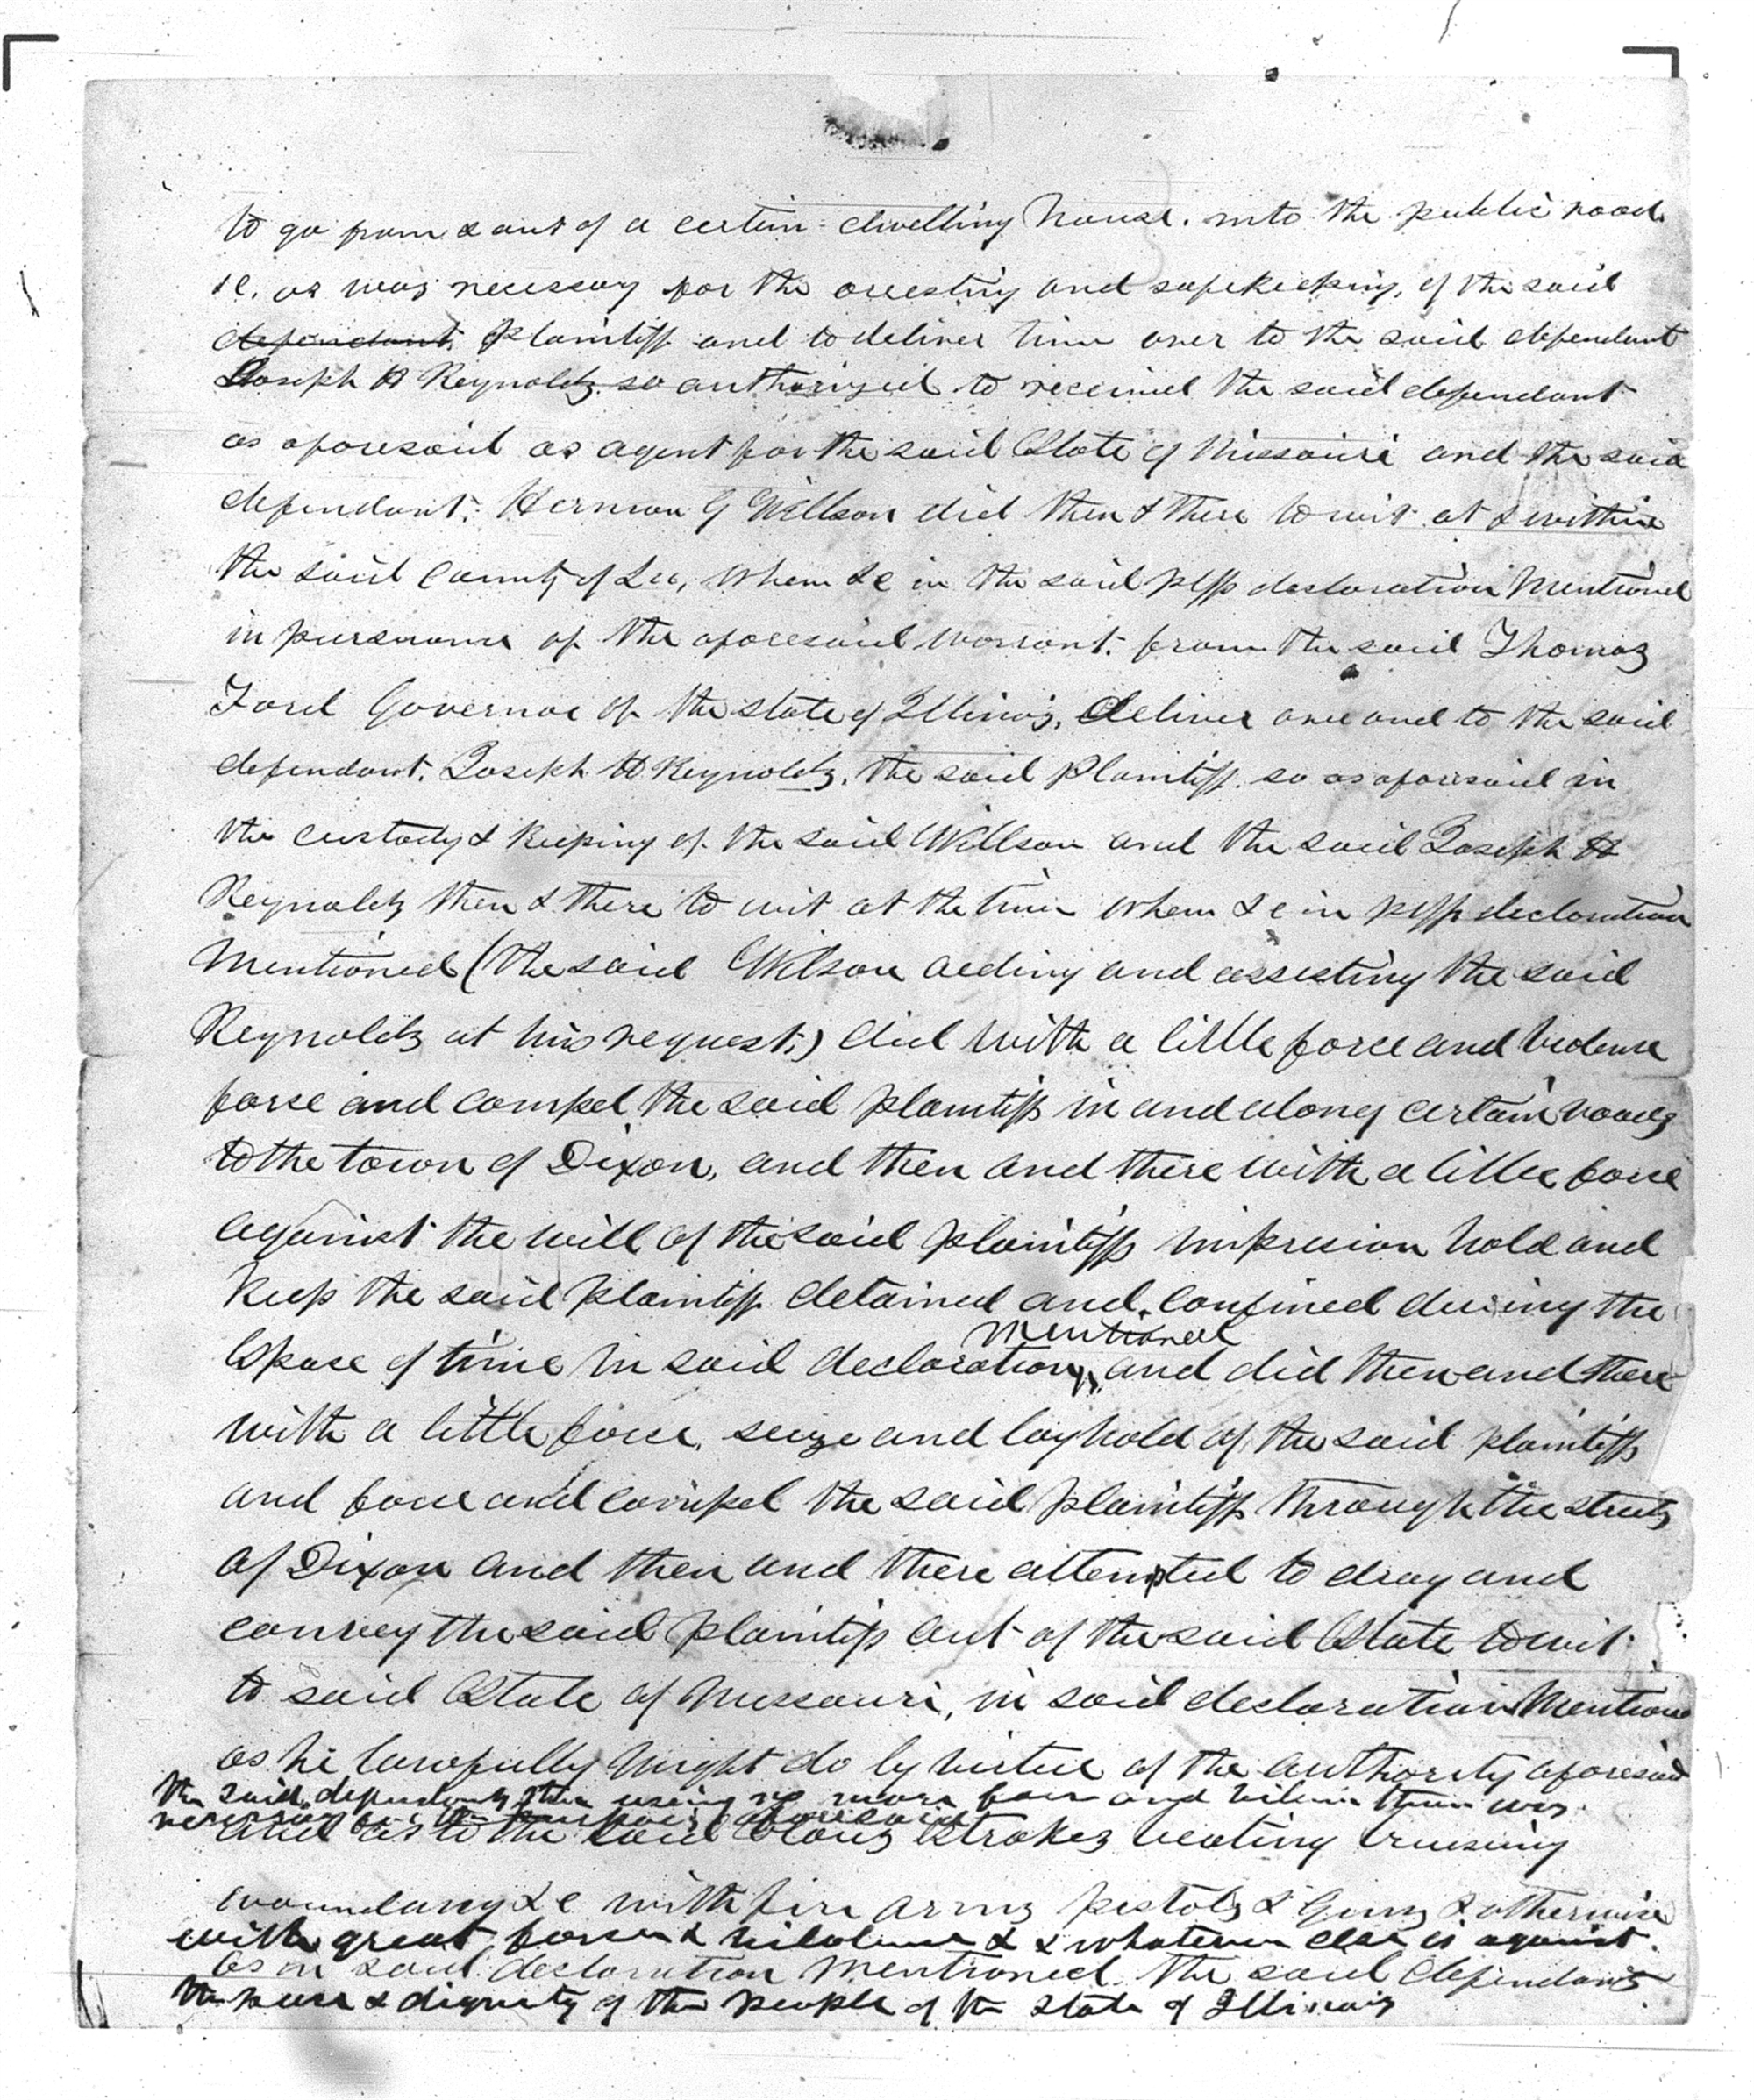 to go from & out of a certain dwelling house. into the public road
&c. as was necessary for the arresting and safekeeping, of the said
defendant plaintiff and to deliver him over to the said defendant
Joseph H Reynolds so authorized to received the said defendant
as aforesaid as agent for the said State of Missouri and the said
defendant. Herman G Willson did then & there to wit at & within
the said County of Lee, when &c in the said plffs declaration mentioned
in pursuance of the aforesaid warrant. from the said Thomas
Ford Governor of the state of Illinois, deliver over and to the said
defendant. Joseph H Reynolds. the said Plaintiff. so as aforesaid in
the custody & keeping of the said Willson and the said Joseph H
Reynolds then & there to wit at the time when &c in plffs declaration
mentioned (the said Wilson aeding and assisting the said
Reynolds at his request.) did with a little force and violence
force and compel the said plaintiff in and along certain roads
to the town of Dixon, and then and there with a little force
against the will of the said plaintiff imprision hold and
keep the said plaintiff detained and confined during the
mentioned
space of time in said declaration, and did then and there
with a little force, seize and lay hold of the said plaintiff
and force and compel the said plaintiff through the streets
of Dixon and then and there attempted to drag and
convey the said plaintiff out of the said State to wit
to said State of Missouri, in said declaration mentioned
as he lawfully might do by virtue of the authority aforesaid
the said defendants then using no more force and violence than was
necessary for the purposes aforesaid
and as to the said blows strokes beating bruising
woundang &c with fire arms pistols & Guns & otherwise
with great force & violence & & whatever else is against
as in said declaration mentioned the said defendants
the peace & dignity of the people of the state of Illinois